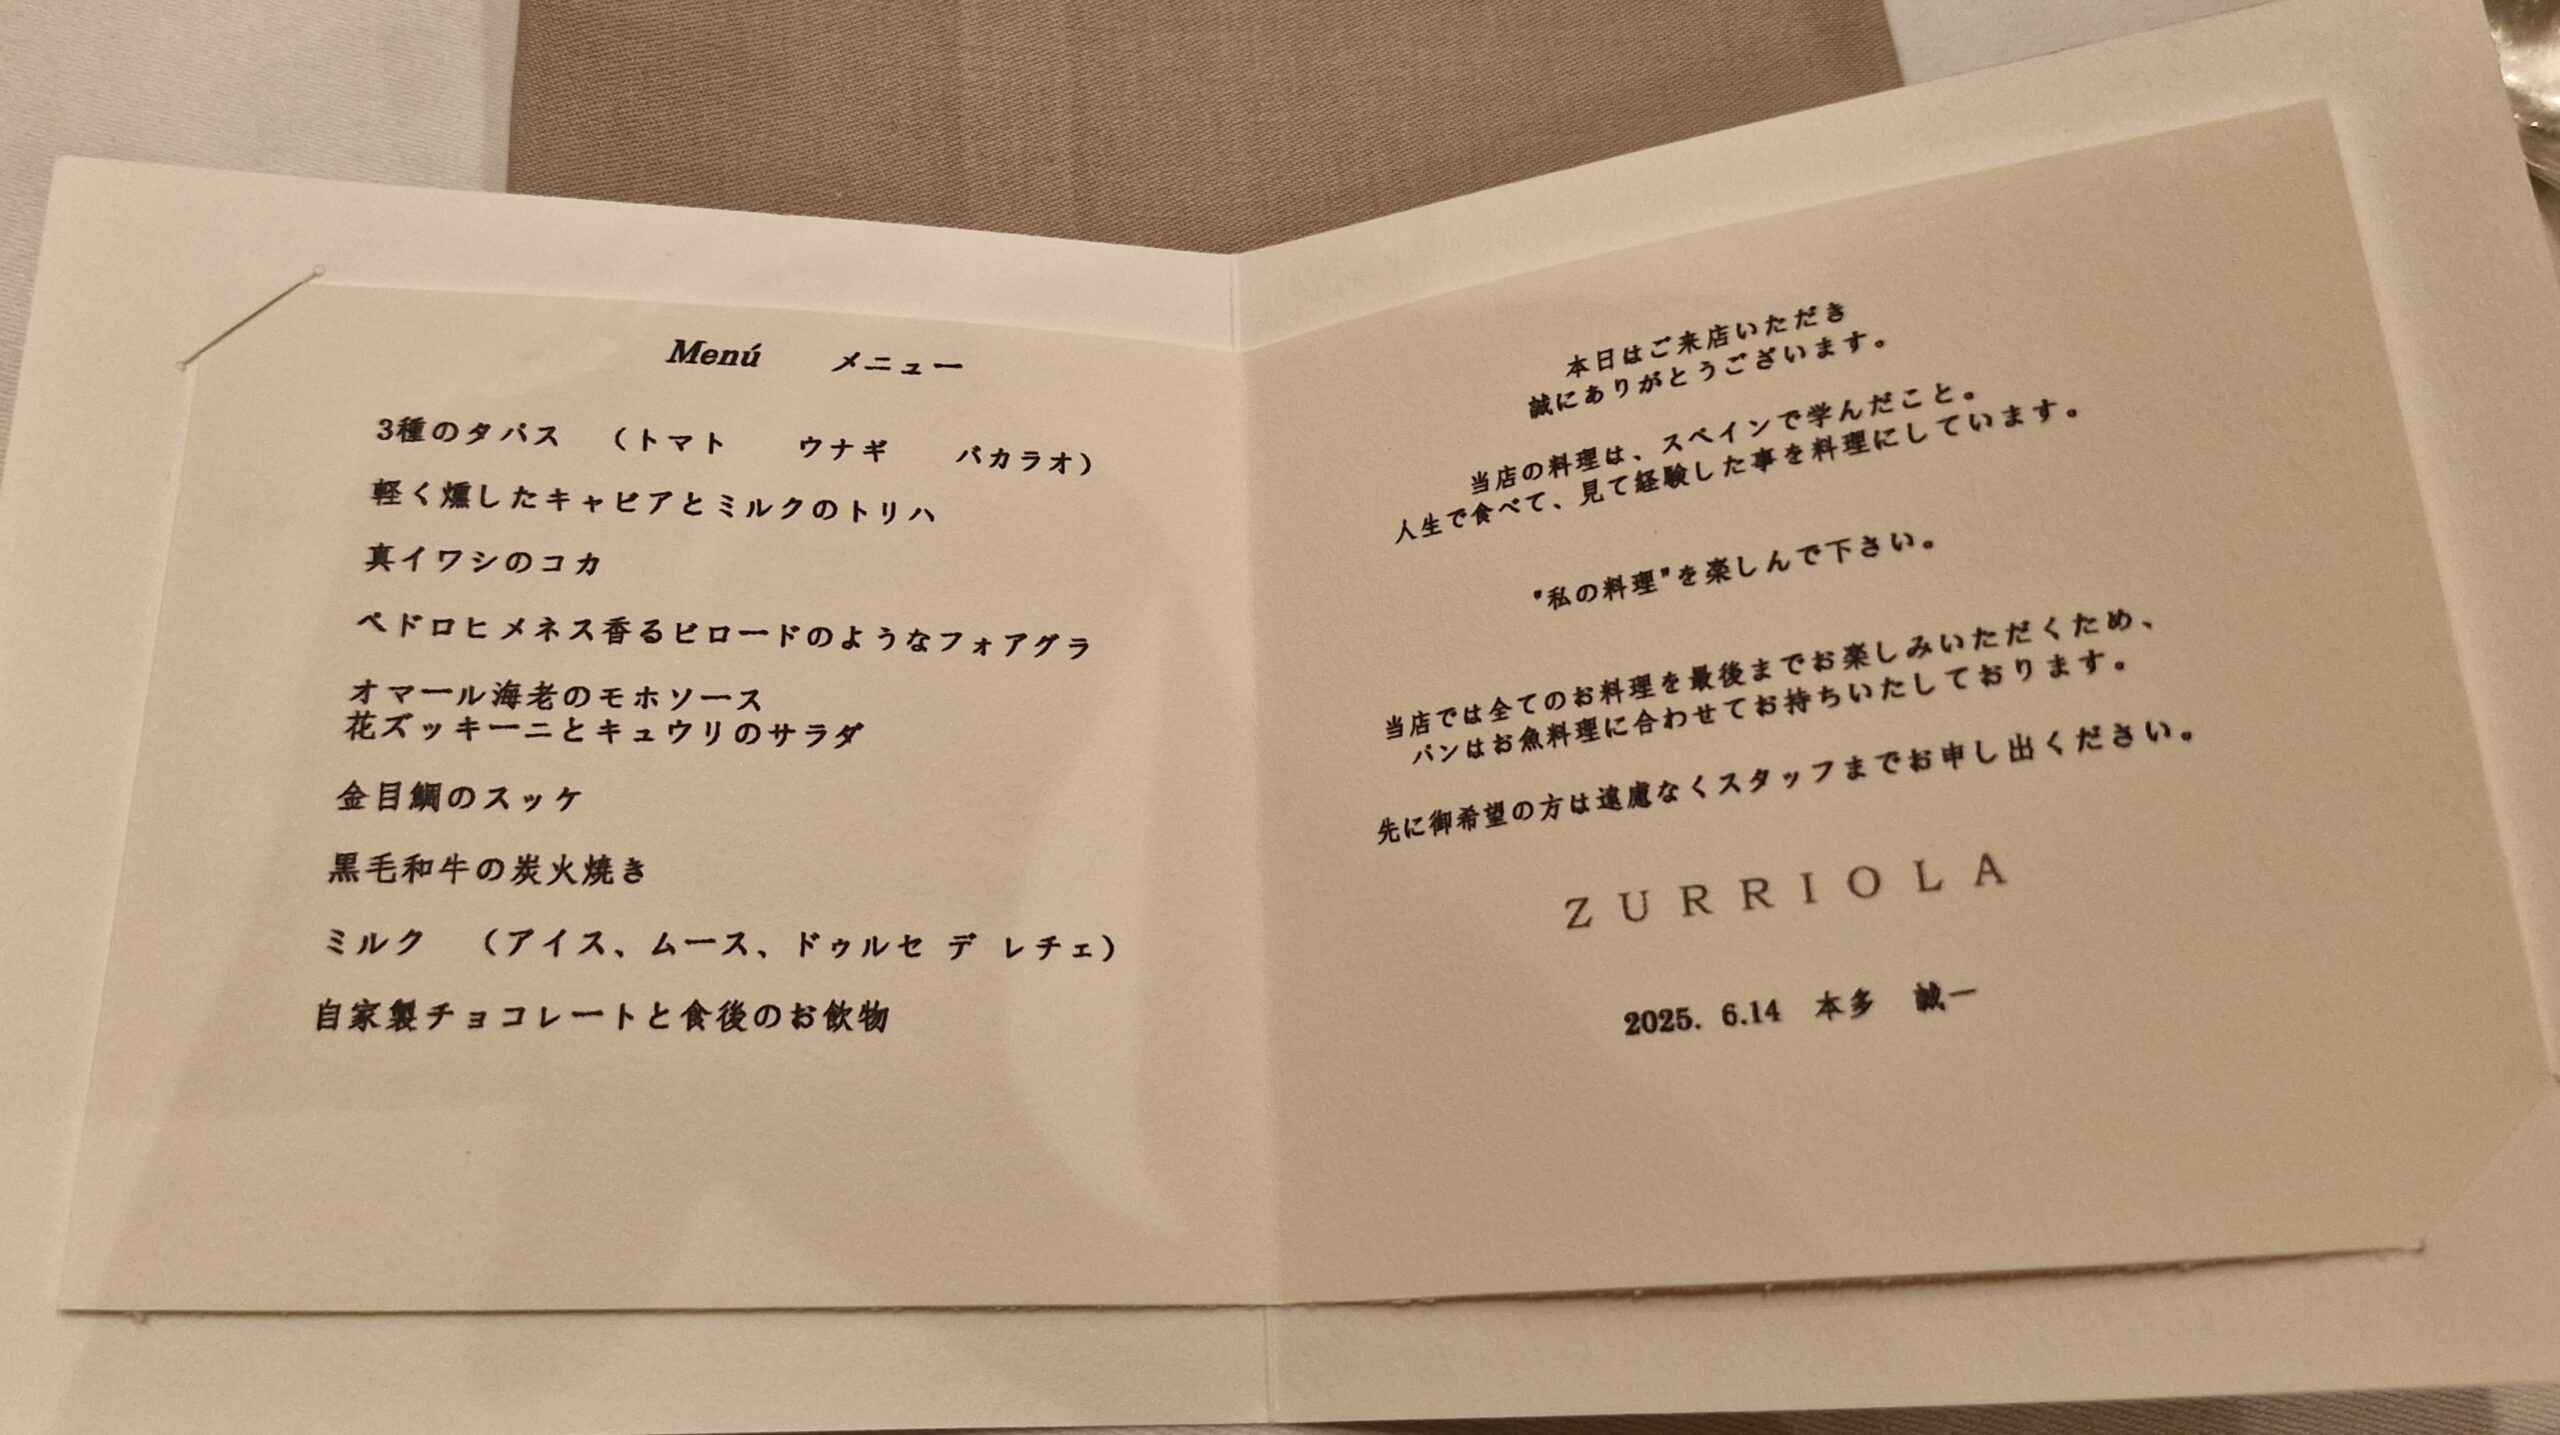 Menú　メニュー
3種のタパス　（トマト　ウナギ　バカラオ）
軽く燻したキャビアとミルクのトリハ
真イワシのコカ
ペドロヒメネス香るビロードのようなフォアグラ
オマール海老のモホソース
花ズッキーニとキュウリのサラダ
金目鯛のスッケ
黒毛和牛の炭火焼き
ミルク　（アイス、ムース、ドゥルセ デ レチェ）
自家製チョコレートと食後のお飲物
本日はご来店いただき
誠にありがとうございます。
当店の料理は、スペインで学んだこと。
人生で食べて、見て経験した事を料理にしています。
"私の料理"を楽しんで下さい。
当店では全てのお料理を最後までお楽しみいただくため、
パンはお魚料理に合わせてお持ちいたしております。
先に御希望の方は遠慮なくスタッフまでお申し出ください。
ZURRIOLA
2025. 6.14　本多　誠一